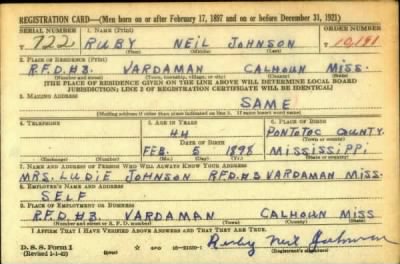 REGISTRATION CARD—(Men born on or after February 17, 1897 and on or before December 31, 1921)
SERIAL NUMBER 1. NAME (Print) ORDER NUMBER
T 722 RUBY NEIL JOHNSON 10,191
(First) (Middle) (Last)
2. PLACE OF RESIDENCE (Print)
R.F.D.#3. VARDAMAN CALHOUN MISS.
(Number and street) (Town, township, village, or city) (County) (State)
[THE PLACE OF RESIDENCE GIVEN ON THE LINE ABOVE WILL DETERMINE LOCAL BOARD
JURISDICTION; LINE 2 OF REGISTRATION CERTIFICATE WILL BE IDENTICAL]
3. MAILING ADDRESS
SAME
[Mailing address if other than place indicated on line 2. If same insert word same]
4. TELEPHONE 5. AGE IN YEARS 6. PLACE OF BIRTH
44 PONTOTOC COUNTY.
DATE OF BIRTH (Town or county)
FEB. 5 1898 MISSISSIPPI
(Exchange) (Number) (Mo.) (Day) (Yr.) (State or country)
7. NAME AND ADDRESS OF PERSON WHO WILL ALWAYS KNOW YOUR ADDRESS
MRS. LUDIE JOHNSON R.F.D.#3 VARDAMAN MISS.
8. EMPLOYER'S NAME AND ADDRESS
SELF
9. PLACE OF EMPLOYMENT OR BUSINESS
R.F.D.#3 VARDAMAN CALHOUN MISS
(Number and street or R. F. D. number) (Town) (County) (State)
I AFFIRM THAT I HAVE VERIFIED ABOVE ANSWERS AND THAT THEY ARE TRUE.
D. S. S. Form 1
(Revised 1-1-42) GPO 16—21630-1 Ruby Neil Johnson